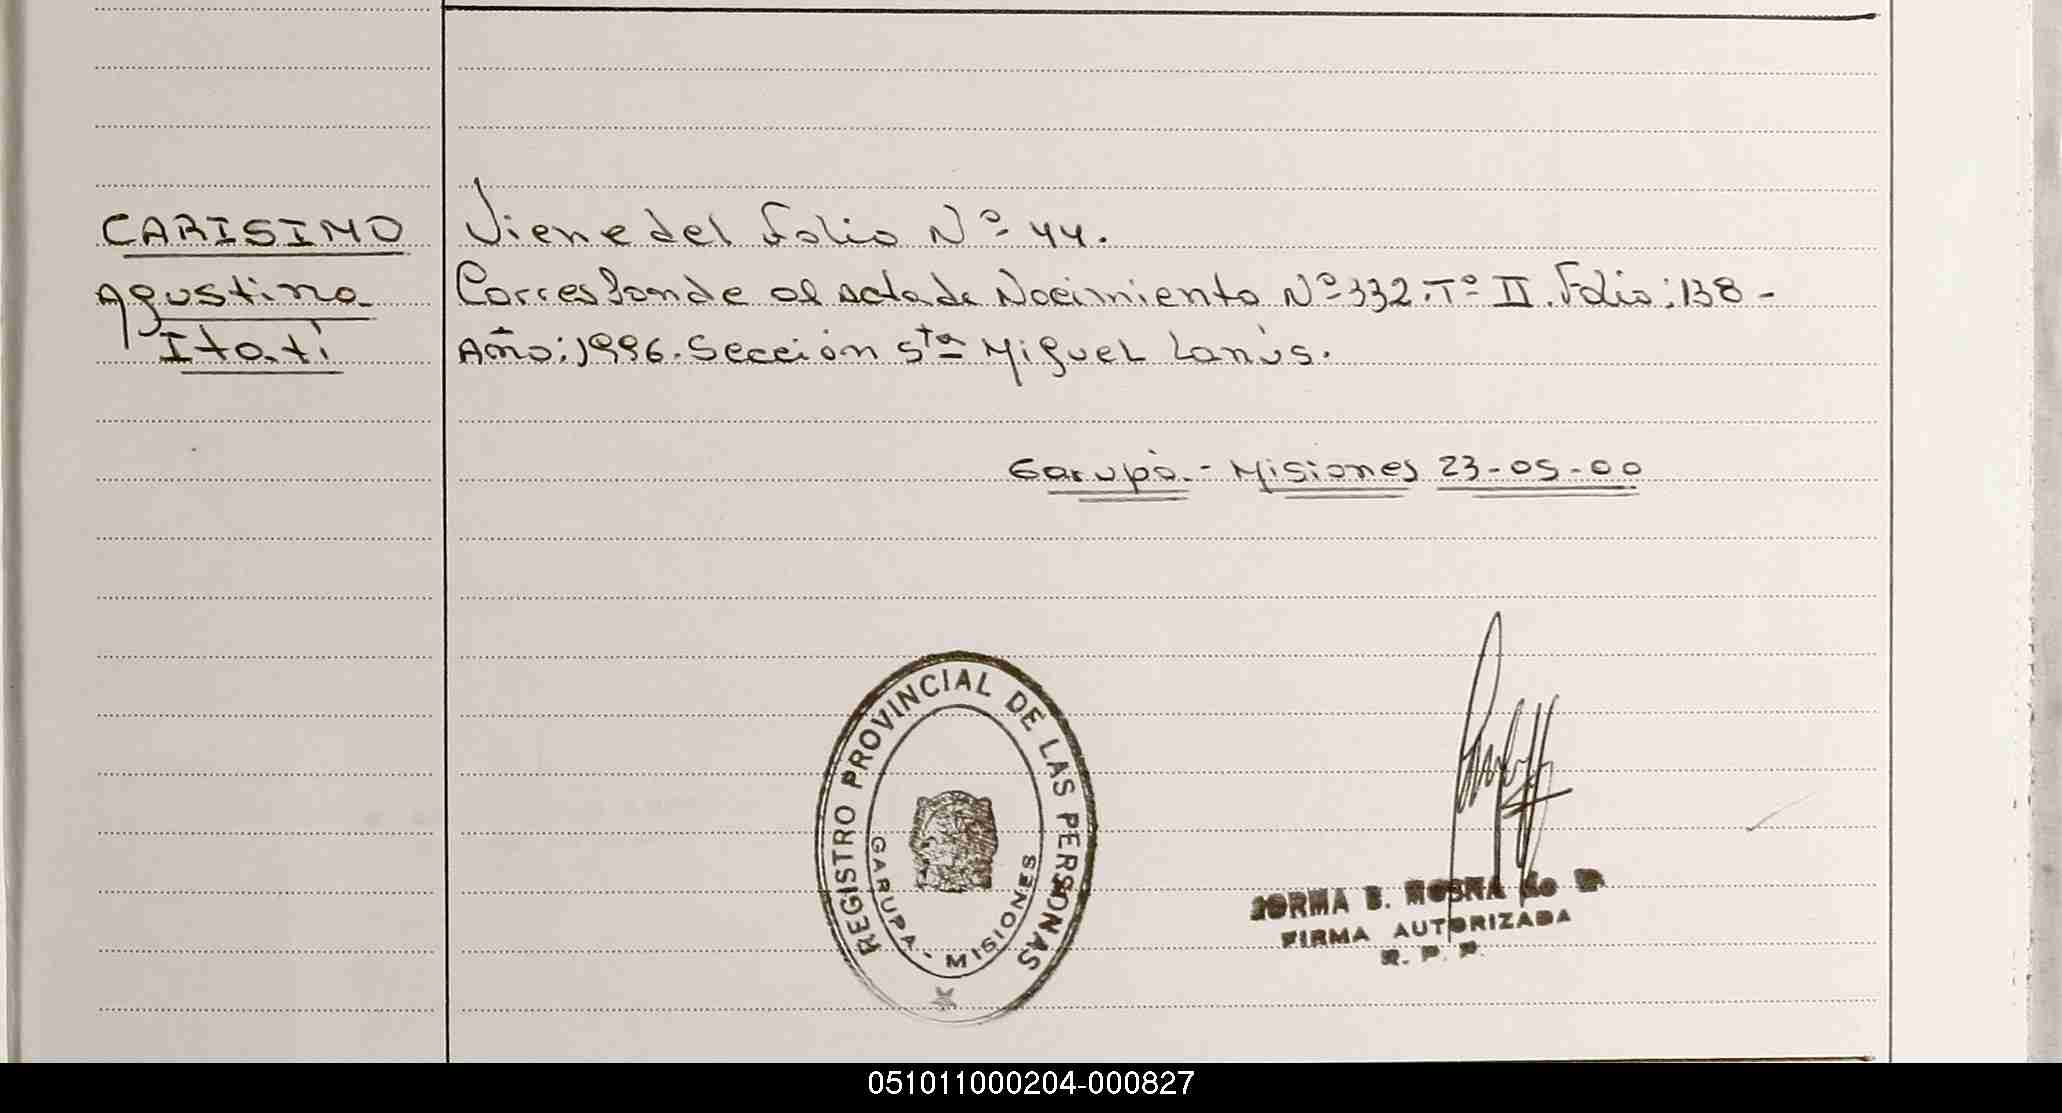 CARISIMO
Agustina
Itatí
Viene del Folio Nº 44.
Corresponde al acta de Nacimiento Nº 332. Tº II. Folio: 138 -
Año: 1996. Sección 5ta Miguel Lanús.
Garupá. - Misiones 23-05-00
REGISTRO PROVINCIAL DE LAS PERSONAS
GARUPA - MISIONES
NORMA B. MOSNA de
FIRMA AUTORIZADA
R. P. P.
051011000204-000827